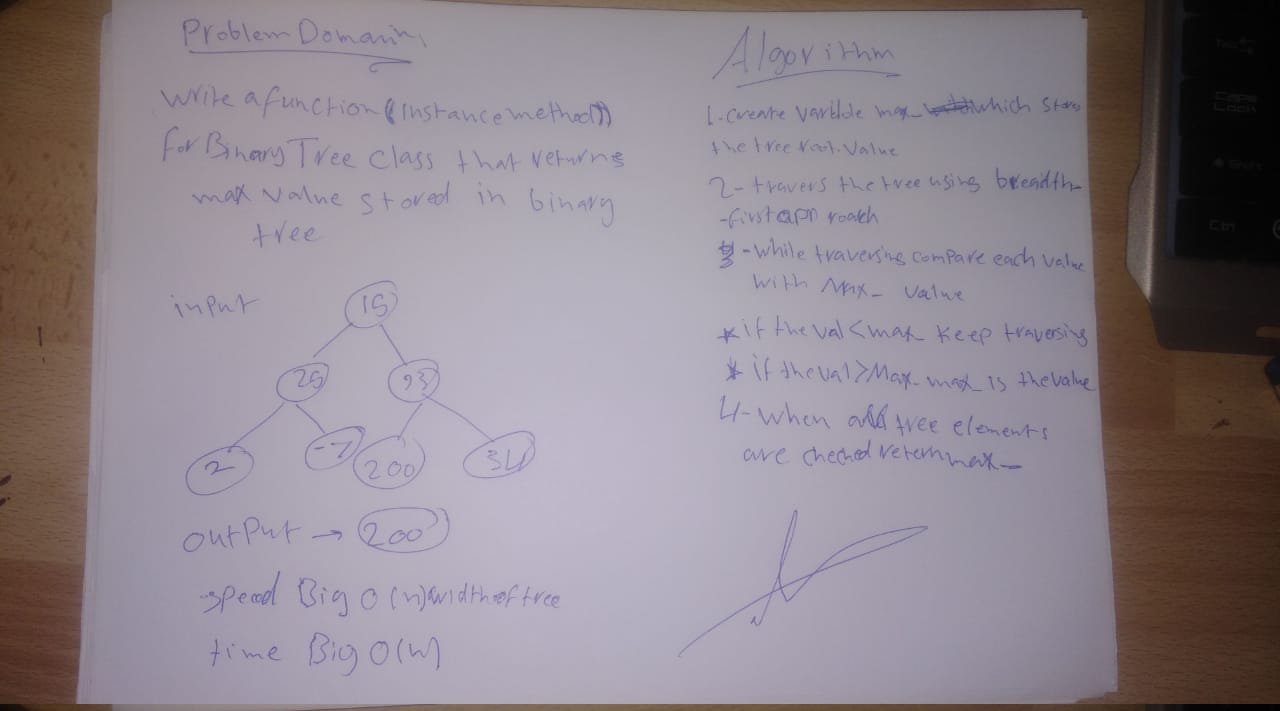 Problem Domain,
Write a function (instance method)
for Binary Tree class that returns
max value stored in binary
tree
input
15
25 93
2 -7 200 34
output → 200
Big O(n) width of tree
time Big O(n)
Algorithm
1. create varible max_ which stores
the tree root.value
2- travers the tree using breadth-
-first approach
3- while traversing compare each value
with Max_ value
* if the val < max_ keep traversing
* if the val > Max_ max_ is the value
4- when all tree elements
are checked retern max_
Tab
Caps
Lock
Shift
Ctrl